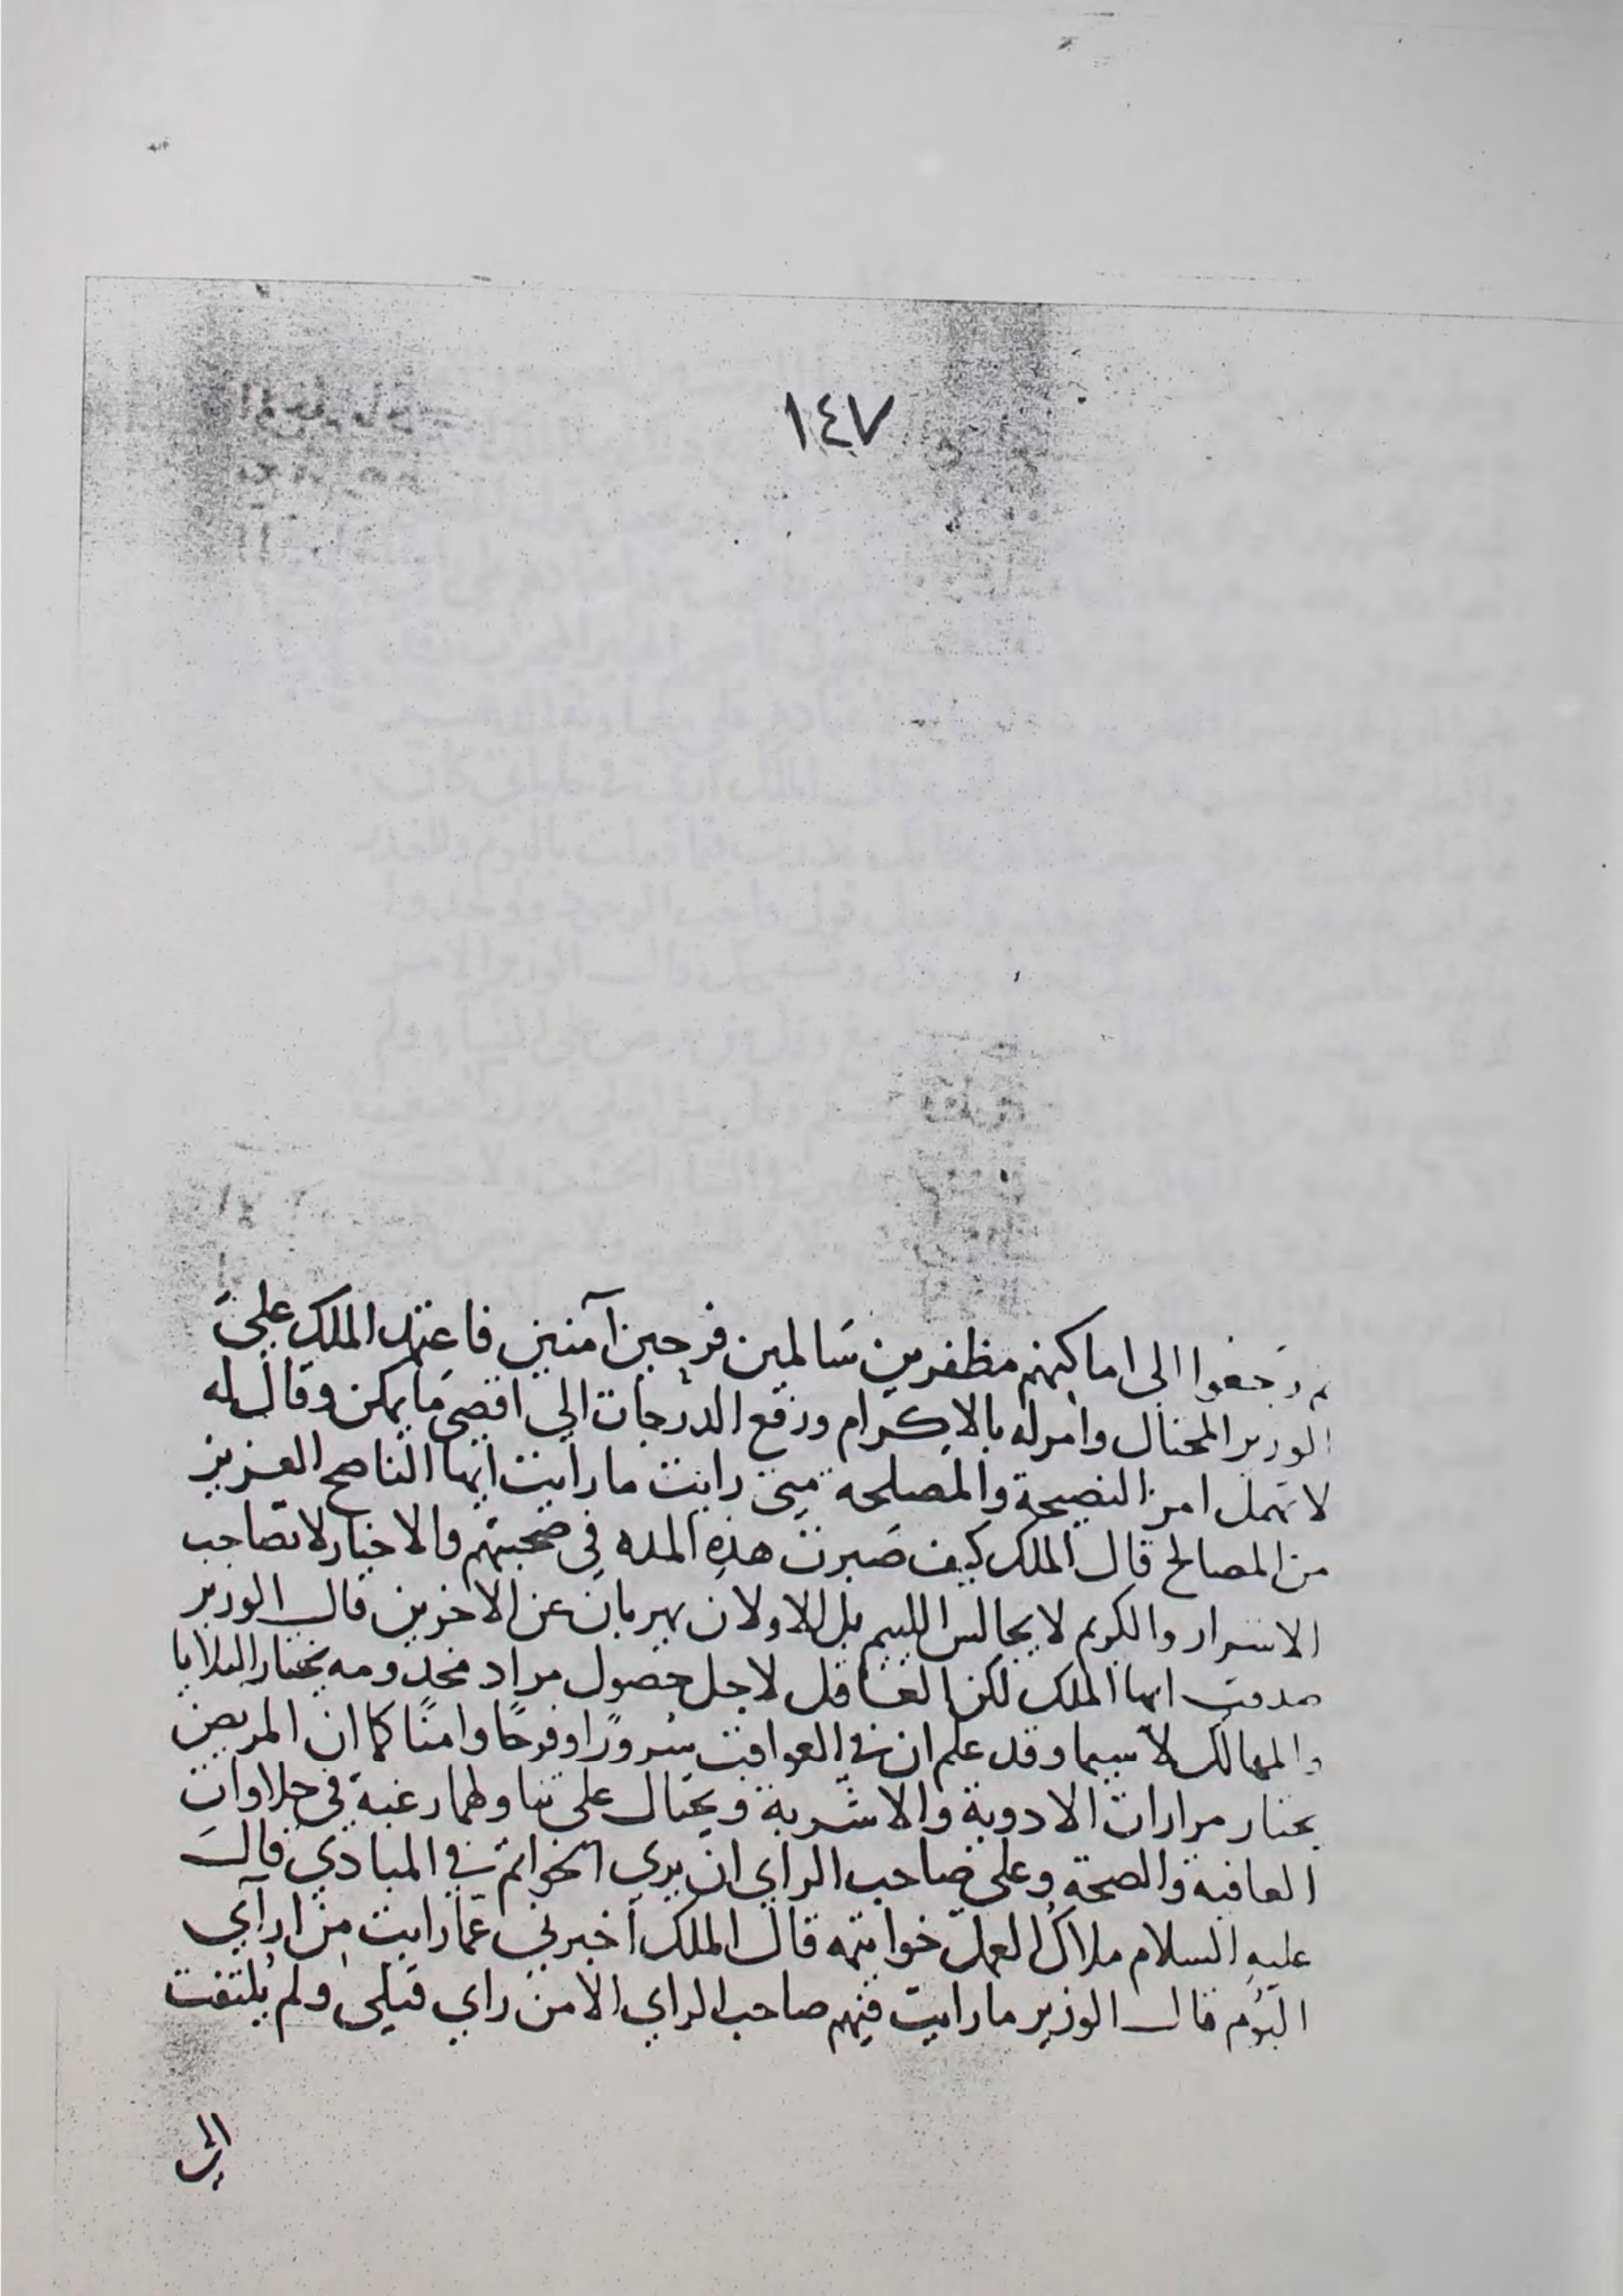 ١٤٧
ثم رجعوا الى اماكنهم مظفرين سَالمين فرحين آمنين فاعتمد الملك على
الوزير المحتال وامر له بالاكرام ورفع الدرجات الى اقصى مَا يمكن وقال له
لا تهمل امر النصيحة والمصلحة متى رايت ما رايت ايها الناصح العزيز
من المصالح قال الملك كيف صَبرت هذه المده في صحبتهم والاخيار لا تصاحب
الاشرار والكريم لا يجالس اللييم بل الاولان يهربان عن الاخرين قال الوزير
صدقت ايها الملك لكن العاقل لاجل حصول مراد مخدومه يختار البلايا
والمهالك لا سيما وقد علم ان في العواقب سُرورًا وفرحًا وامنًا كما ان المريض
يختار مرارات الادوية والاشربة ويحتال على تناولها رغبة في حلاوات
العافية والصحة وعلى صاحب الراي ان يري الخواتم في المبادي قال
عليه السلام ملاك العمل خواتمه قال الملك اخبرني عمّا رايت من اراي
البُوم قال الوزير ما رايت فيهم صاحب الراي الا من راي قتلى ولم يلتفت
الى